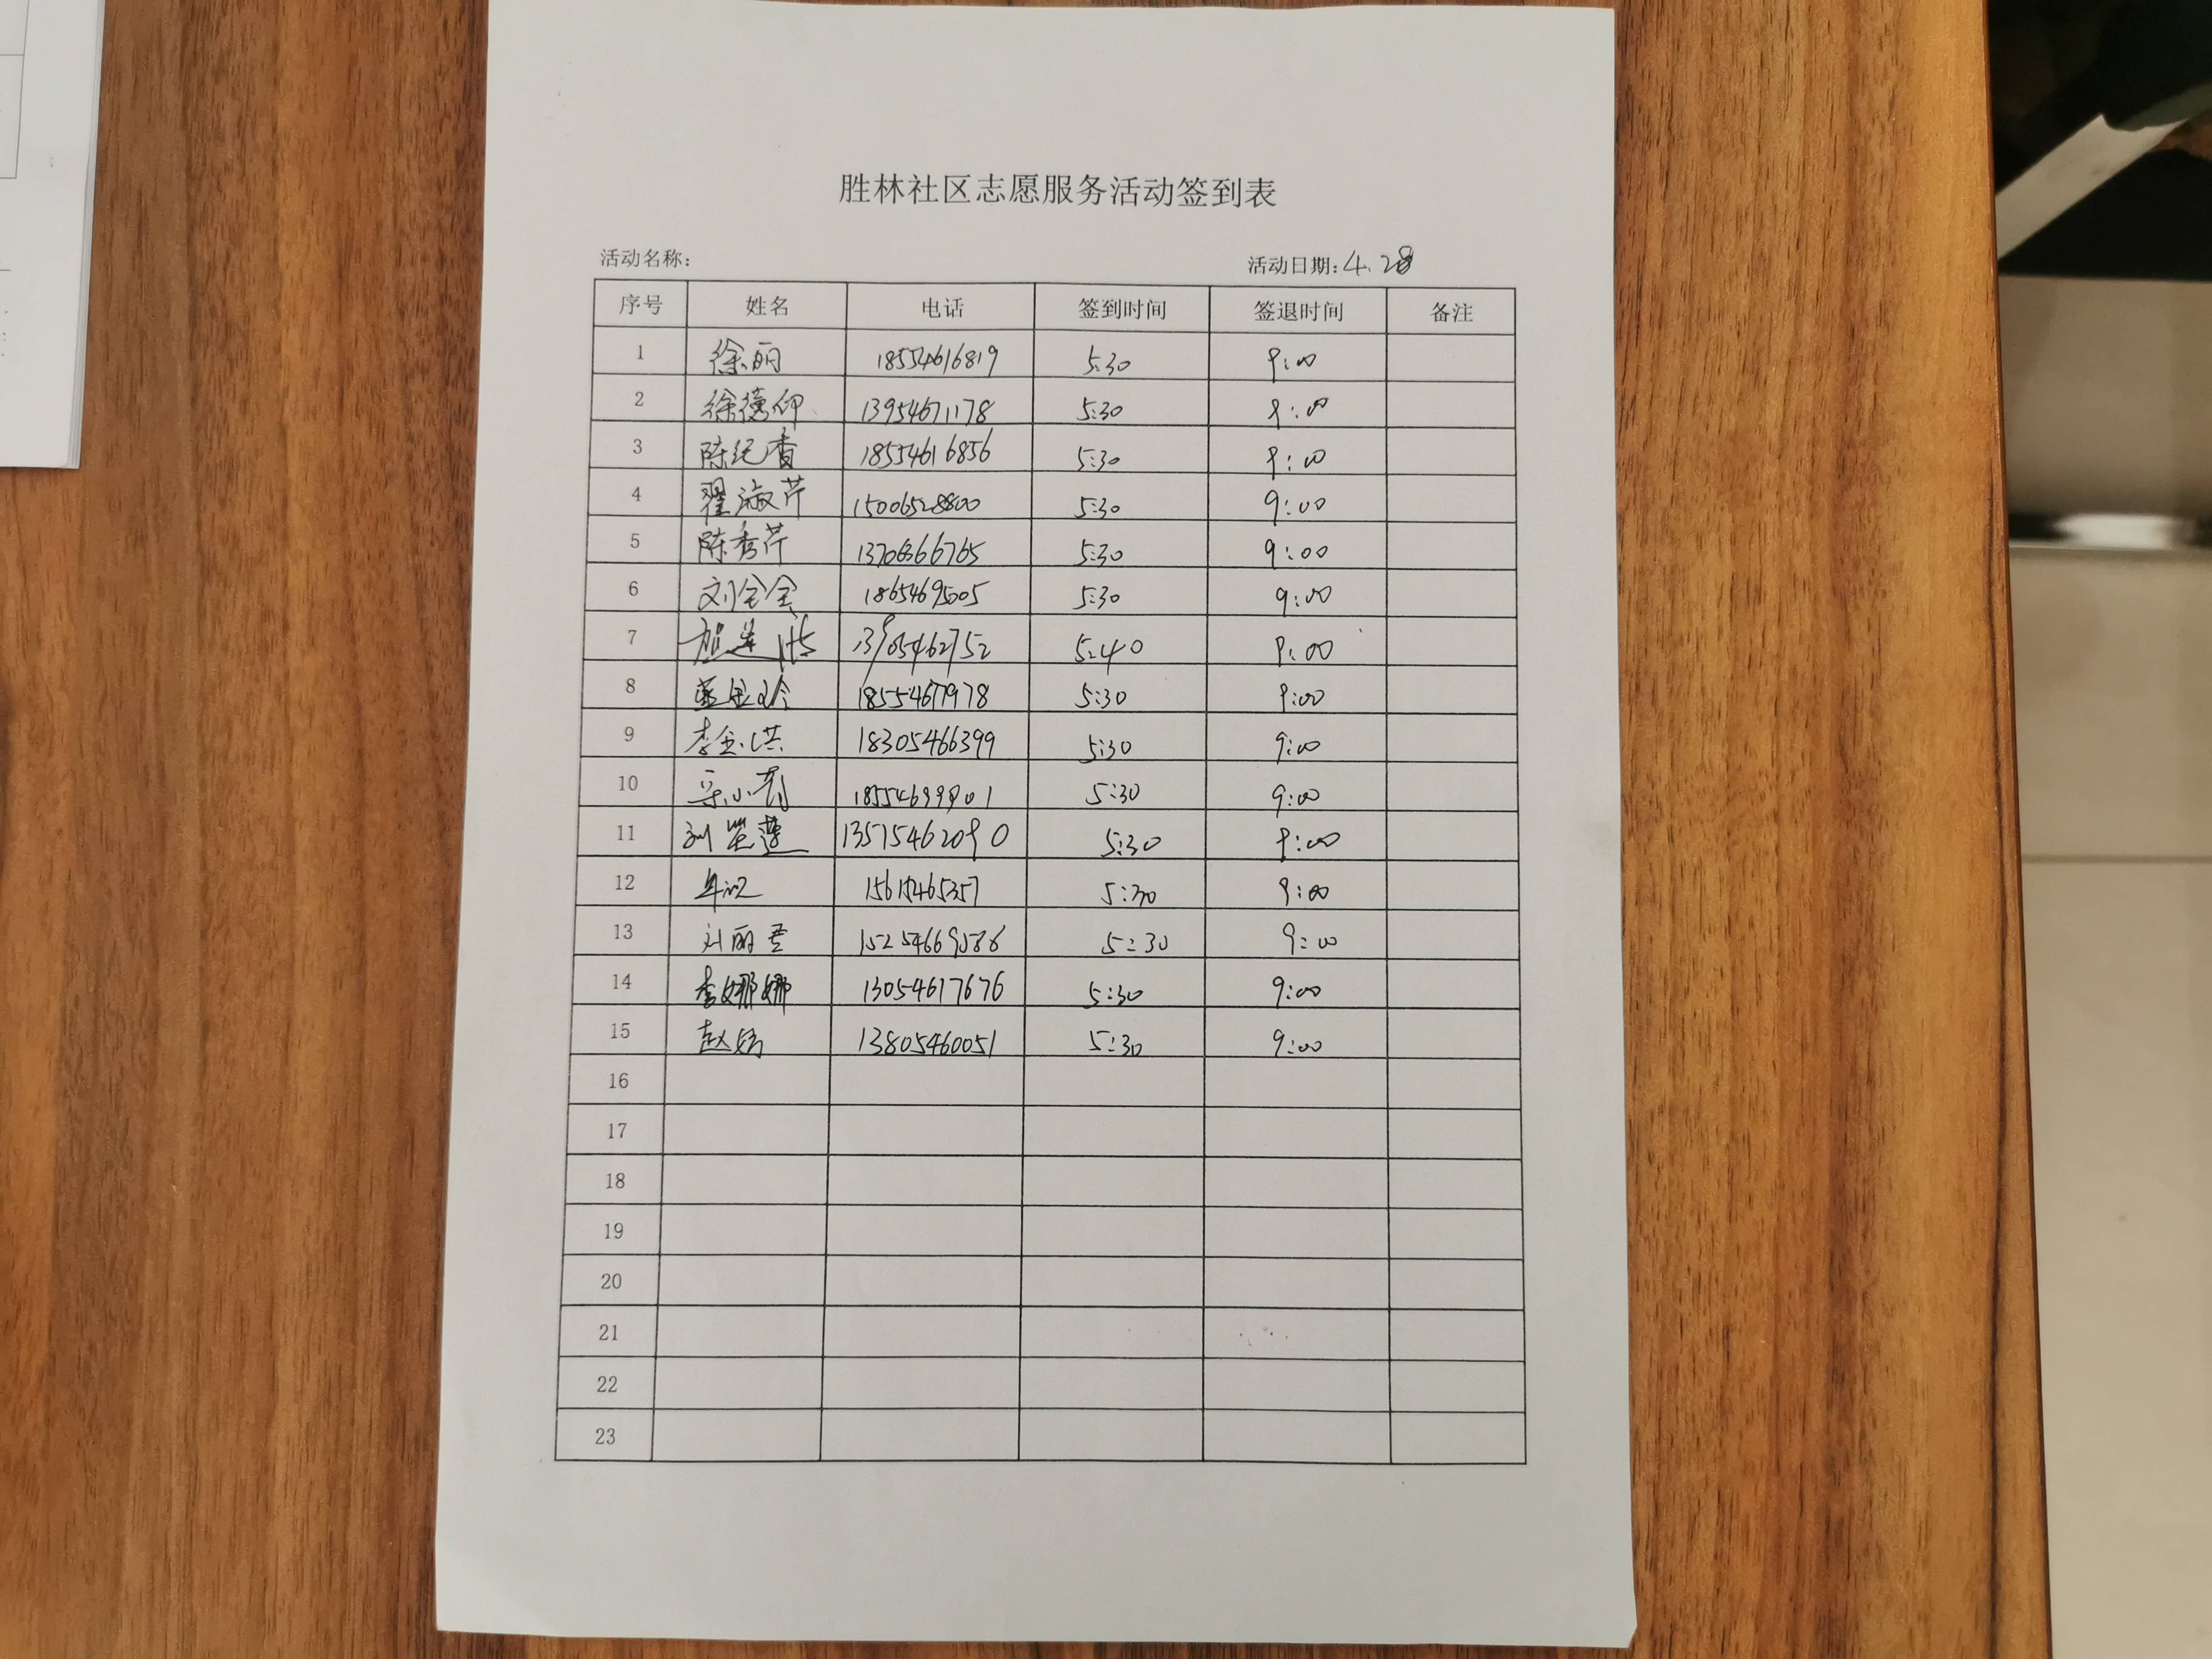 胜林社区志愿服务活动签到表
活动名称: 活动日期: 4.28
序号 姓名 电话 签到时间 签退时间 备注
1 徐丽 18554616819 5:30 9:00
2 徐德仰 13954671178 5:30 9:00
3 陈纪香 18554616856 5:30 9:00
4 翟淑芹 15006528800 5:30 9:00
5 陈秀芹 5:30 9:00
6 刘全会 18654695005 5:30 9:00
7 5:40 9:00
8 18554671978 5:30 9:00
9 李金洪 18305466399 5:30 9:00
10 5:30 9:00
11 刘 莲 13515462090 5:30 9:00
12 15615465357 5:30 9:00
13 刘丽君 15254669586 5:30 9:00
14 李娜娜 13054617676 5:30 9:00
15 赵娟 13805460051 5:30 9:00
16
17
18
19
20
21
22
23